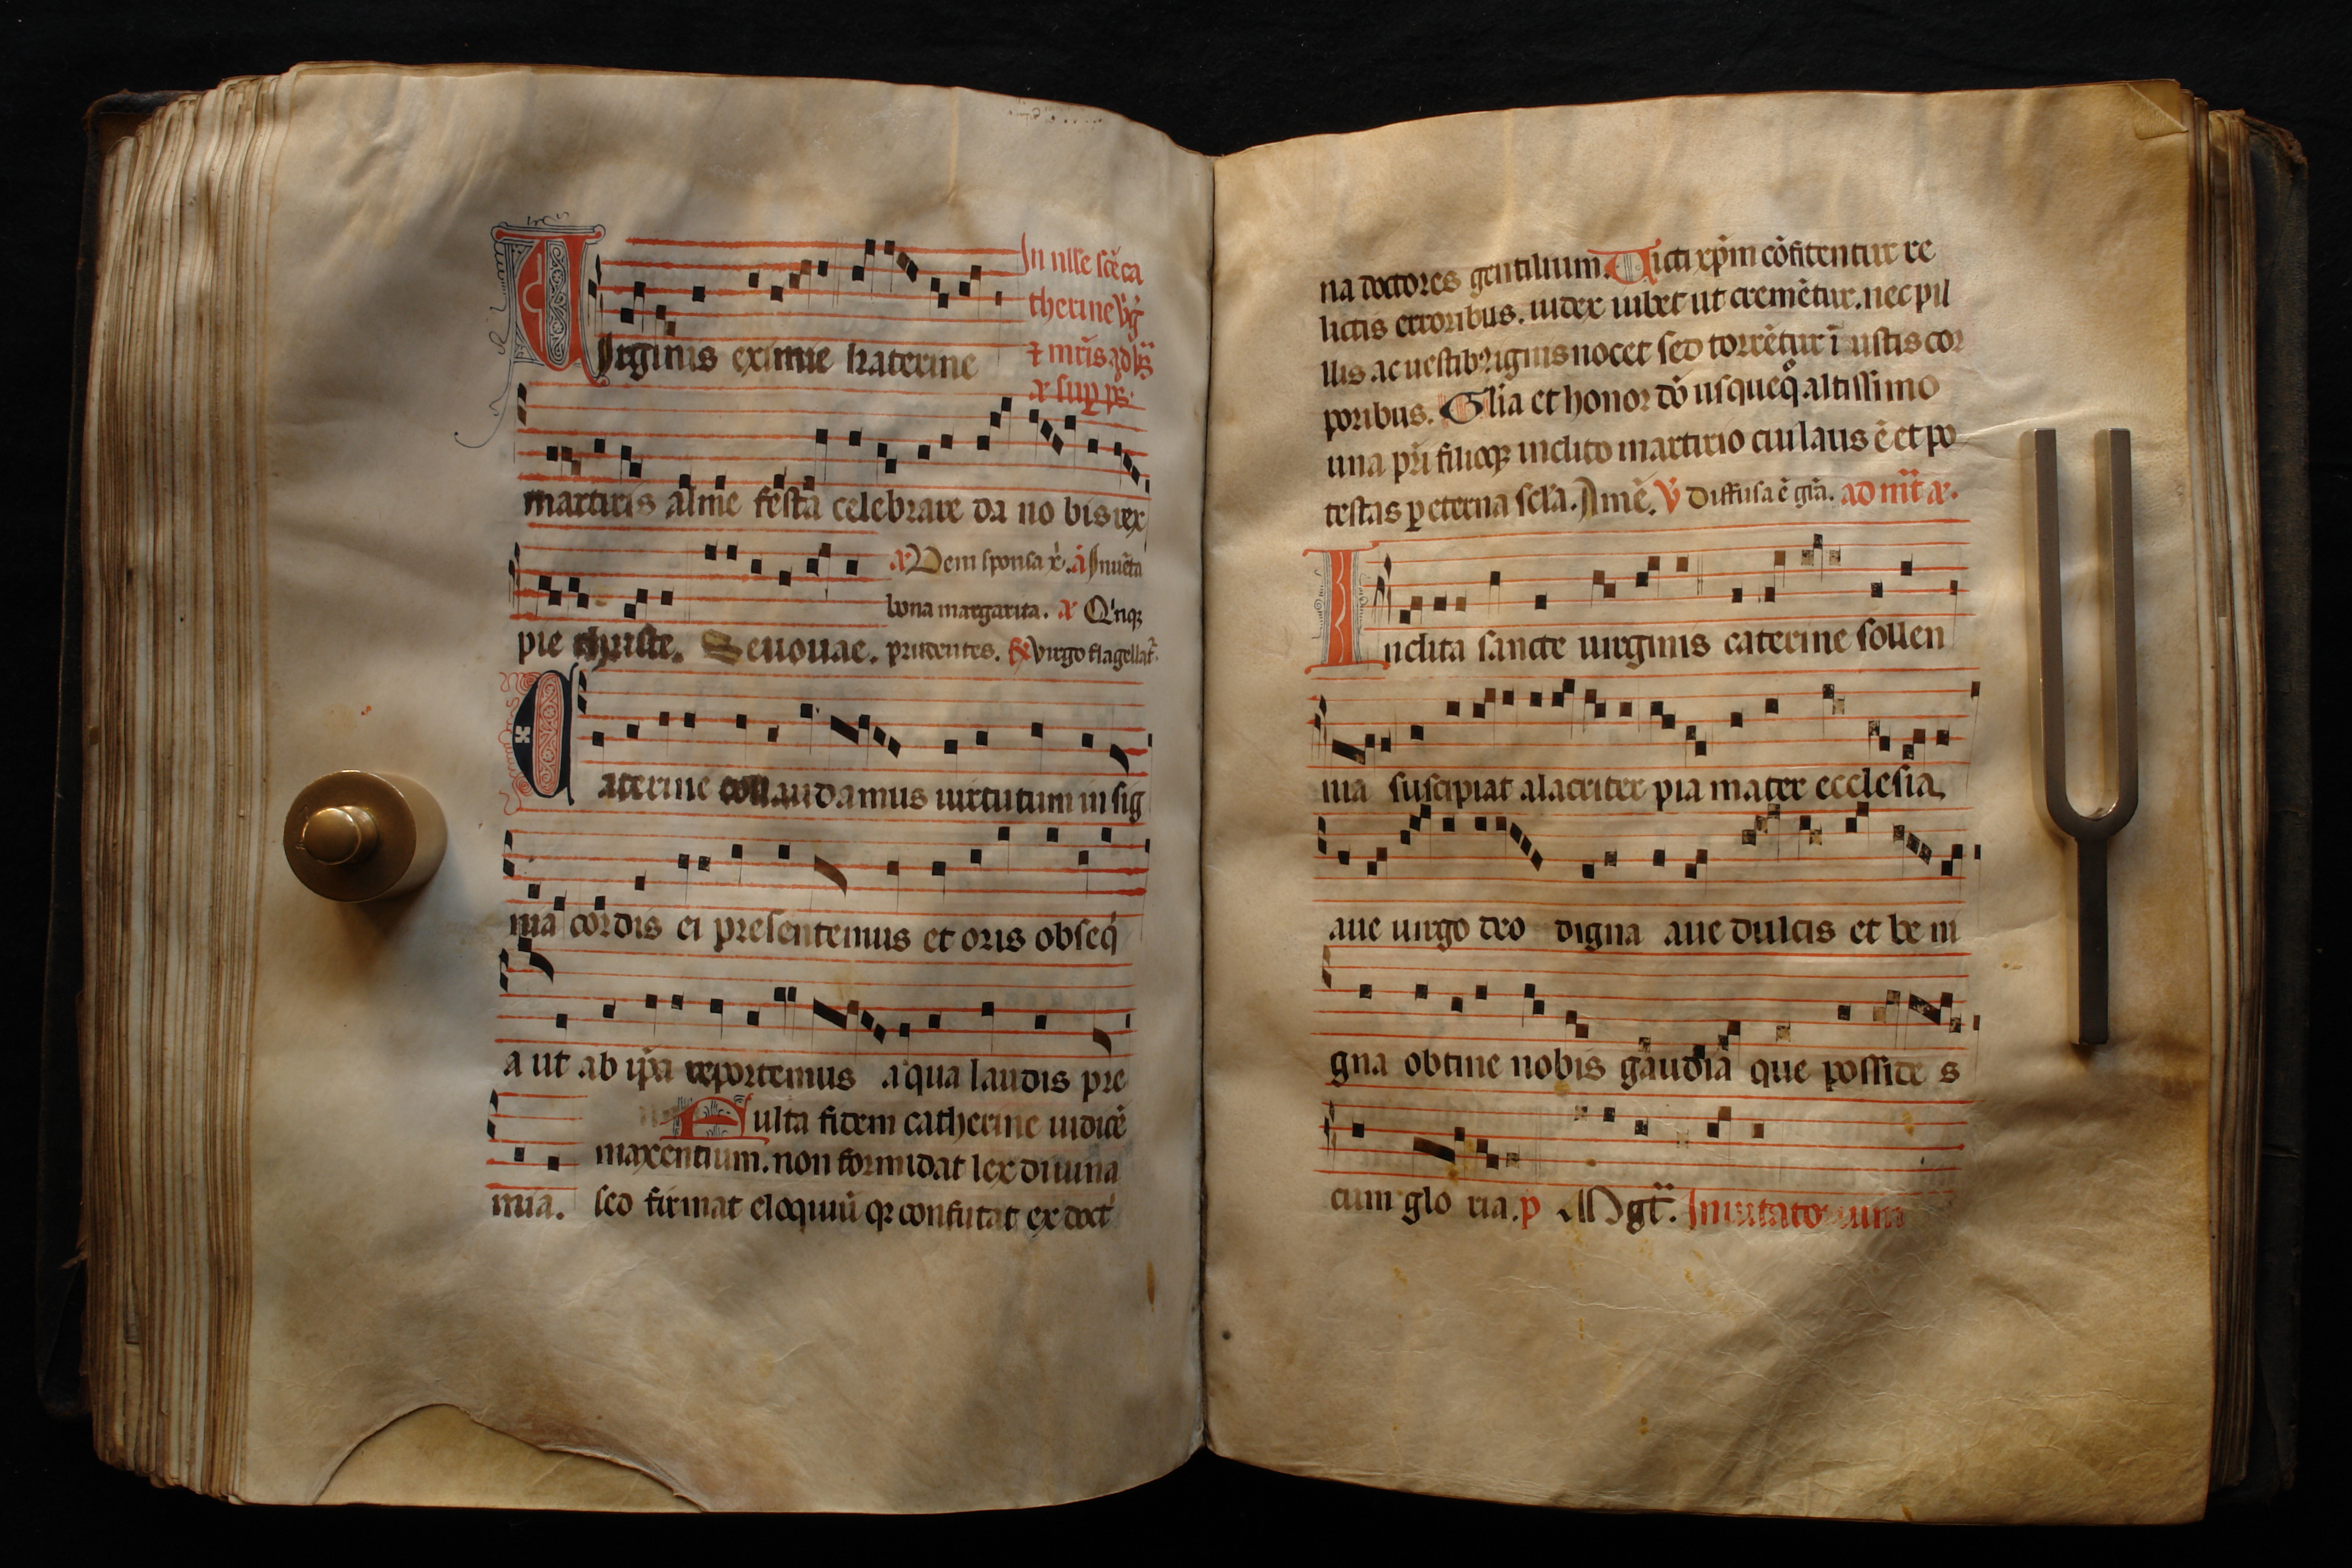 In nlle scē ca
therine v̄ḡ
⁊ mr̄is. ad
Virginis eximie katerine
martiris alme festa celebrare da no bis rex
a Vem sponsa x̄. a Inuēta
bona margarita. a Q'nqꝫ
pie christe. Seuouae. prudentes. ℟ Virgo flagellat̄
Caterine collaudamus uirtutum in sig
nia cordis ei presentemus et oris obseq̇
a ut ab ip̄a reportemus a'qua laudis pre
ulta fidem catherine iudicē
maxentium. non formidat lex diuina
mia. sed firmat eloquiū qꝫ confutat ex doct
na doctores gentilium. Victi xp̄m cōfitentur re
lictis erroribus. iudex iubet ut cremētur. nec pil
llis ac uestibꝫ ignis nocet sed torrētur ī ustis cor
poribus. Glīa et honor dō usqueq̊ altissimo
una pr̄i filioqꝫ inclito martirio cui laus ē et po
testas ꝑ eterna sc̄la. Amē. ℣ Diffusa ē gr̄a. ad
Inclita sancte uirginis caterine sollen
nia suscipiat alacriter pia mater ecclesia.
aue uirgo deo digna aue dulcis et be ni
gna obtine nobis gaudia que possides
cum glo ria. p Mgt̄. Inuitatorium